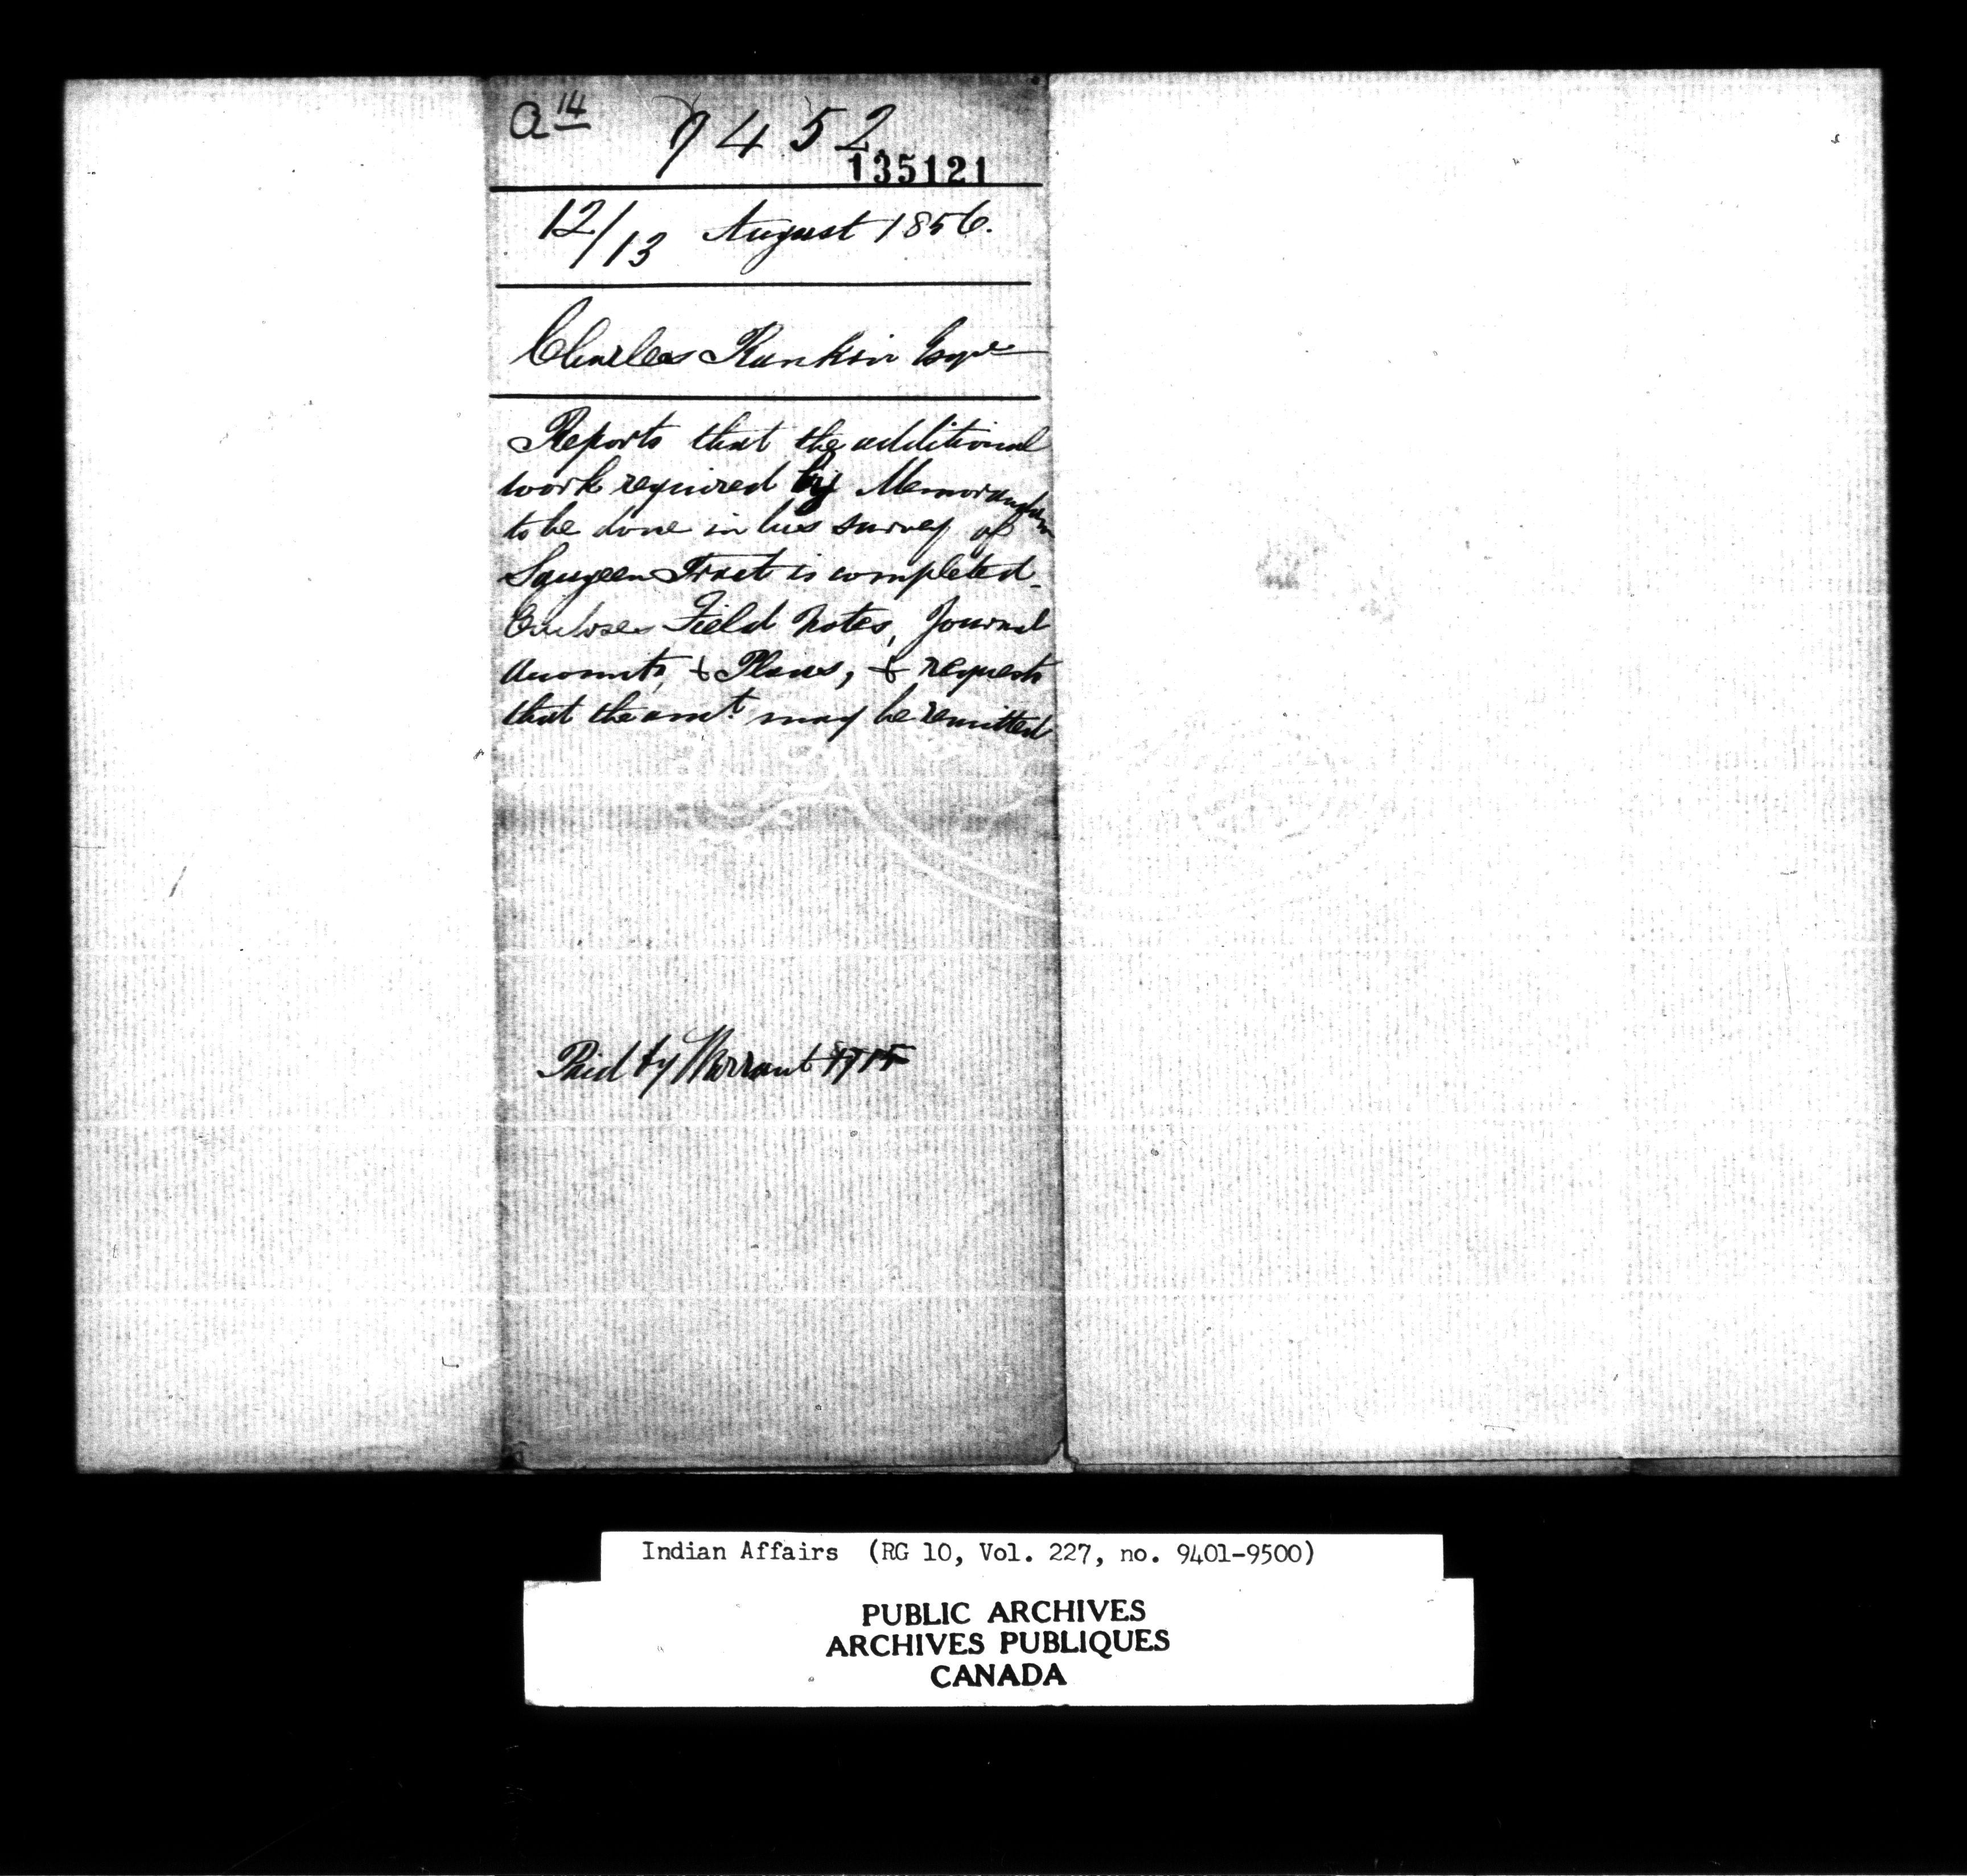 a 14
9452
135121
12/13 August 1856.
Charles Rankin Esqre
Reports that the additional
work required by Memorandum
to be done in his survey of
Saugeen Tract is completed.
Encloses Field Notes, Journal
Accounts, & Plans, & requests
that the amt. may be remitted
Paid by Warrant
Indian Affairs (RG 10, Vol. 227, no. 9401-9500)
PUBLIC ARCHIVES
ARCHIVES PUBLIQUES
CANADA